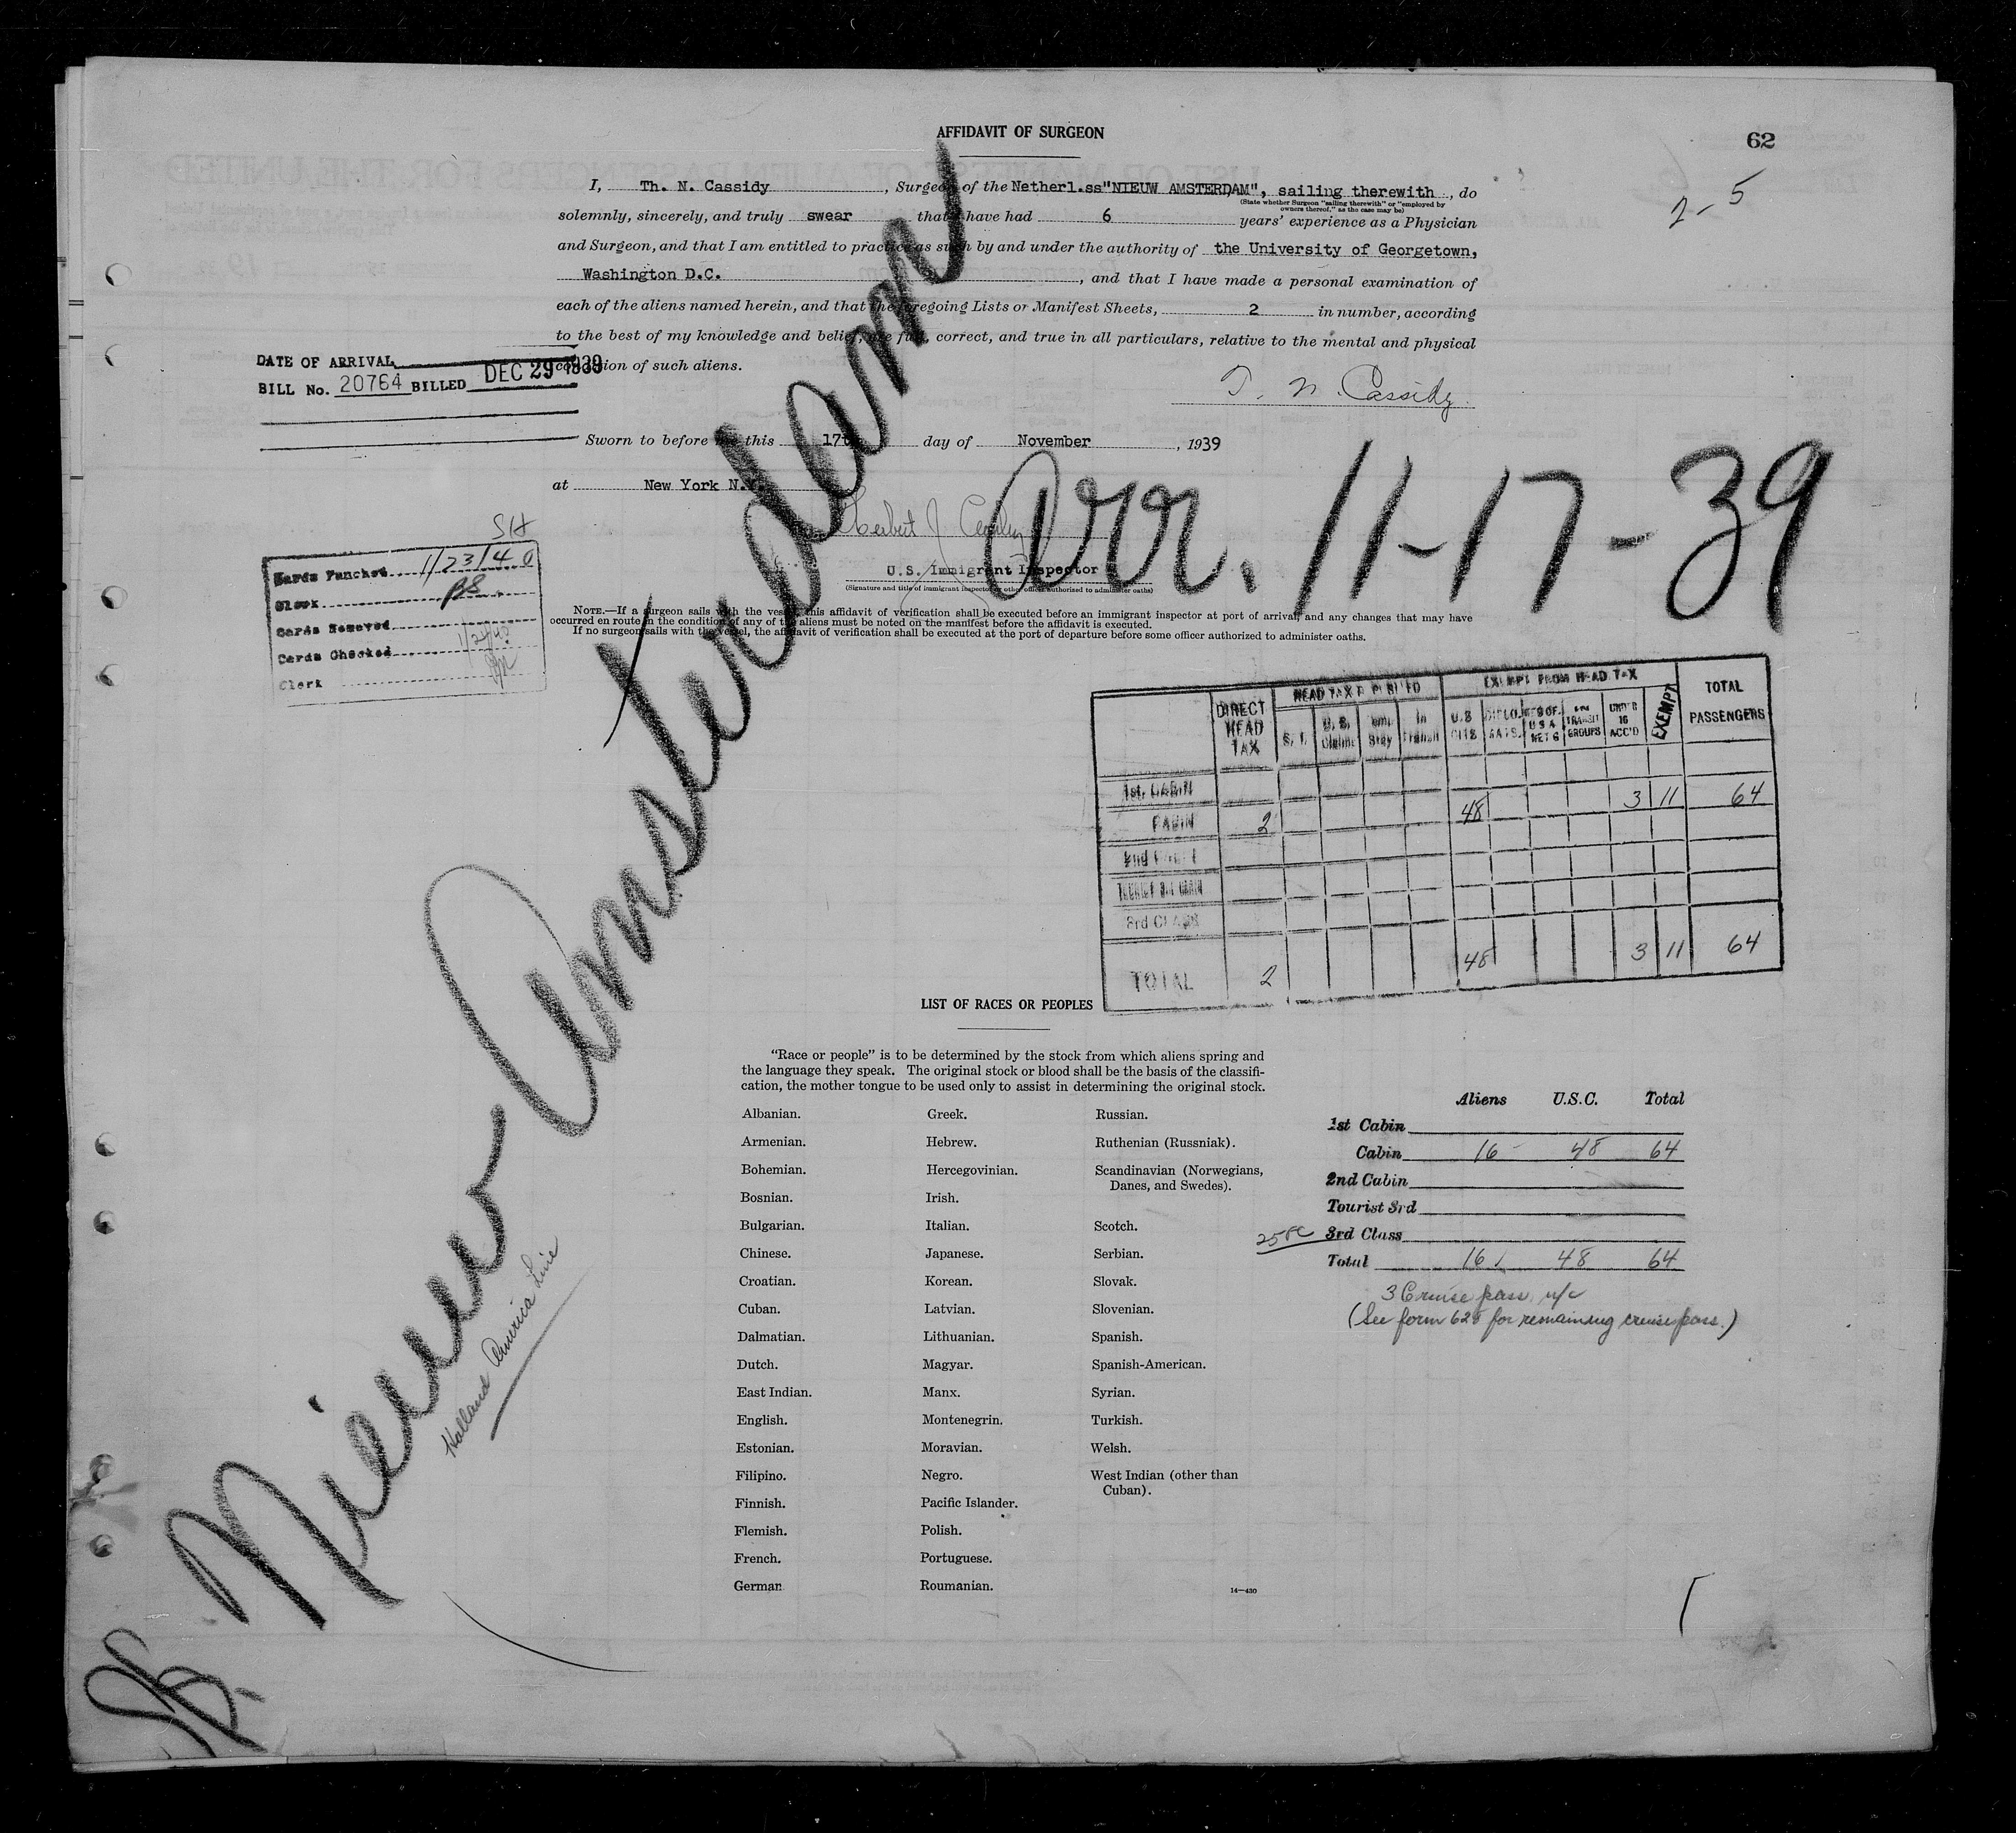 AFFIDAVIT OF SURGEON
62
2-5
I, Th. N. Cassidy, Surgeon of the Netherl.ss"NIEUW AMSTERDAM", sailing therewith, do
(State whether Surgeon "sailing therewith" or "employed by
owners thereof," as the case may be)
solemnly, sincerely, and truly swear that I have had 6 years' experience as a Physician
and Surgeon, and that I am entitled to practice as such by and under the authority of the University of Georgetown,
Washington D.C., and that I have made a personal examination of
each of the aliens named herein, and that the foregoing Lists or Manifest Sheets, 2 in number, according
to the best of my knowledge and belief, are full, correct, and true in all particulars, relative to the mental and physical
condition of such aliens.
DATE OF ARRIVAL
BILL No. 20764 BILLED DEC 29 1939
T. N. Cassidy
Sworn to before me this 17th day of November, 1939
at New York N.Y.
Arr. 11-17-39
U.S. Immigrant Inspector
(Signature and title of immigrant inspector or other officer authorized to administer oaths)
SH
Cards Punched 1/23/40
Clerk
Cards Removed
Cards Checked
Clerk
NOTE.—If a surgeon sails with the vessel, this affidavit of verification shall be executed before an immigrant inspector at port of arrival, and any changes that may have
occurred en route in the condition of any of the aliens must be noted on the manifest before the affidavit is executed.
If no surgeon sails with the vessel, the affidavit of verification shall be executed at the port of departure before some officer authorized to administer oaths.
Nieuw Amsterdam
Holland America Line
DIRECT HEAD TAX
EXEMPT FROM HEAD TAX
EXEMPT
TOTAL PASSENGERS
1st. CABIN
CABIN 2 48 3 11 64
3rd CLASS
TOTAL 2 48 3 11 64
LIST OF RACES OR PEOPLES
"Race or people" is to be determined by the stock from which aliens spring and
the language they speak. The original stock or blood shall be the basis of the classifi-
cation, the mother tongue to be used only to assist in determining the original stock.
Albanian.
Armenian.
Bohemian.
Bosnian.
Bulgarian.
Chinese.
Croatian.
Cuban.
Dalmatian.
Dutch.
East Indian.
English.
Estonian.
Filipino.
Finnish.
Flemish.
French.
German
Greek.
Hebrew.
Hercegovinian.
Irish.
Italian.
Japanese.
Korean.
Latvian.
Lithuanian.
Magyar.
Manx.
Montenegrin.
Moravian.
Negro.
Pacific Islander.
Polish.
Portuguese.
Roumanian.
Russian.
Ruthenian (Russniak).
Scandinavian (Norwegians,
Danes, and Swedes).
Scotch.
Serbian.
Slovak.
Slovenian.
Spanish.
Spanish-American.
Syrian.
Turkish.
Welsh.
West Indian (other than
Cuban).
14—430
Aliens U.S.C. Total
1st Cabin
Cabin 16 48 64
2nd Cabin
Tourist 3rd
3rd Class
Total 16 48 64
3 Cruise pass.
(See form 625 for remaining cruise pass.)